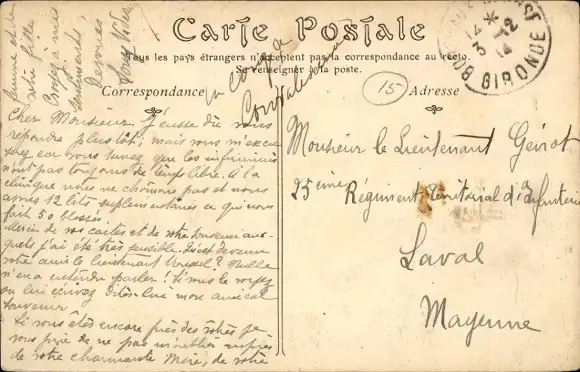 Carte Postale
Tous les pays étrangers n'acceptent pas la correspondance au recto.
Se renseigner à la poste.
Correspondance
Adresse
15
GIRONDE
Cher Monsieur. J'eusse dû vous
répondre plus tôt, mais vous m'excu
serez car vous savez que les infirmières
n'ont pas toujours de temps libre. à la
clinique nous ne chômons pas et nous
avons 12 lits supplémentaires ce qui nous
fait 50 blessés.
Merci de vos cartes et de votre souvenir aux-
quels j'ai été très sensible. Qu'est devenu
votre ami le lieutenant
n'en a entendu parler! Si vous le voyez
ou lui écrivez dites-lui mon amical
souvenir.
Si vous êtes encore près des vôtres je
vous prie de ne pas m'oublier auprès
de votre charmante Mère, de votre
femme et de
votre fille.
Croyez à mes
sentiments
Monsieur le Lieutenant
25ème Régiment Territorial d'Infanterie
Laval
Mayenne